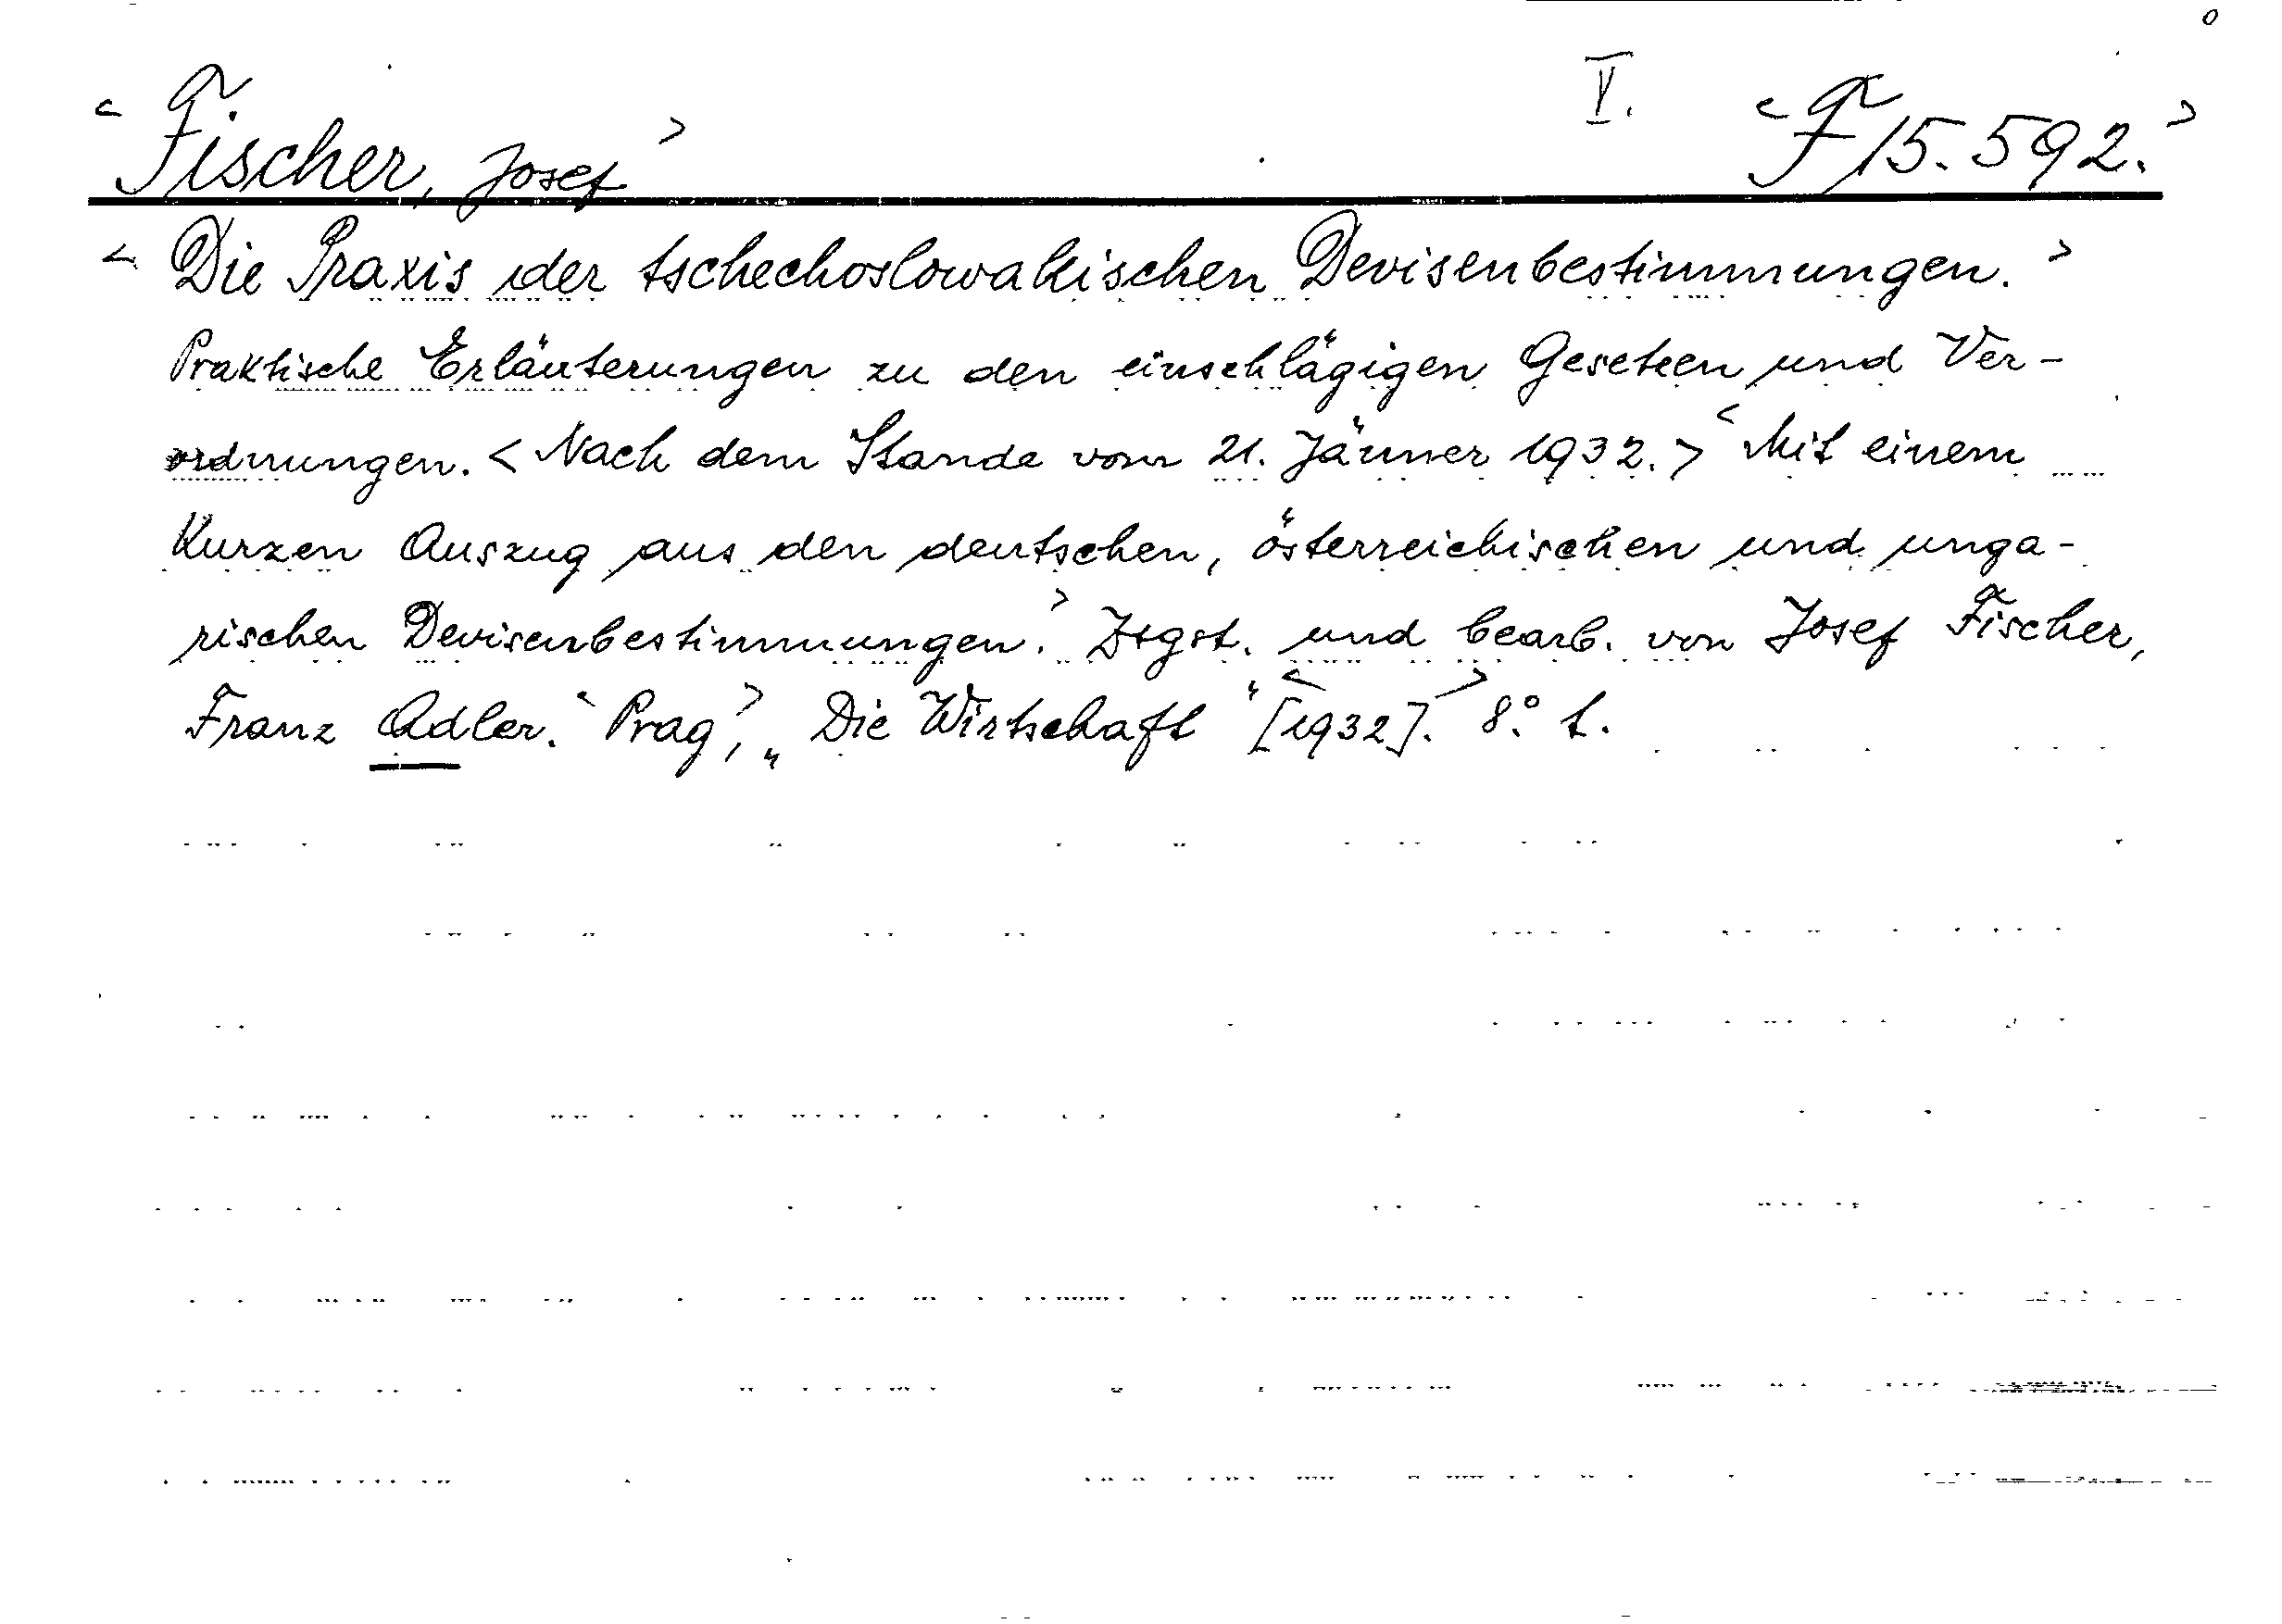 <Fischer, Josef> V. <F 15.592.>
<Die Praxis der tschechoslowakischen Devisenbestimmungen.>
Praktische Erläuterungen zu den einschlägigen Gesetzen und Ver-
ordnungen. <Nach dem Stande vom 21. Jänner 1932.> <Mit einem
kurzen Auszug aus den deutschen, österreichischen und unga-
rischen Devisenbestimmungen.> Zsgst. und bearb. von Josef Fischer,
Franz Adler. <Prag>, „Die Wirtschaft" <[1932].> 8° t.